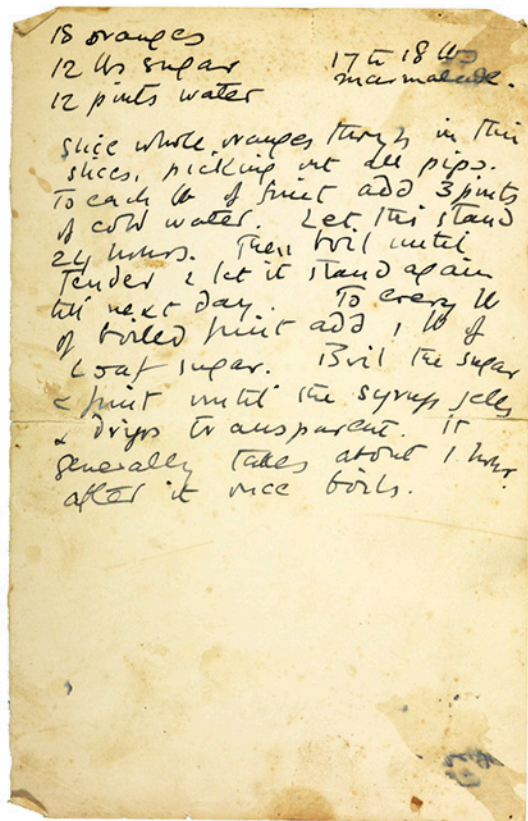 18 oranges
12 lbs sugar
12 pints water
17 to 18 lbs
marmalade.
Slice whole oranges through in thin
slices, picking out all pips.
To each lb of fruit add 3 pints
of cold water. Let this stand
24 hours. Then boil until
Tender & let it stand again
till next day. To every lb
of boiled fruit add 1 lb of
Loaf sugar. Boil the sugar
& fruit until the syrup jells
& drips transparent. It
generally takes about 1 hour
after it once boils.